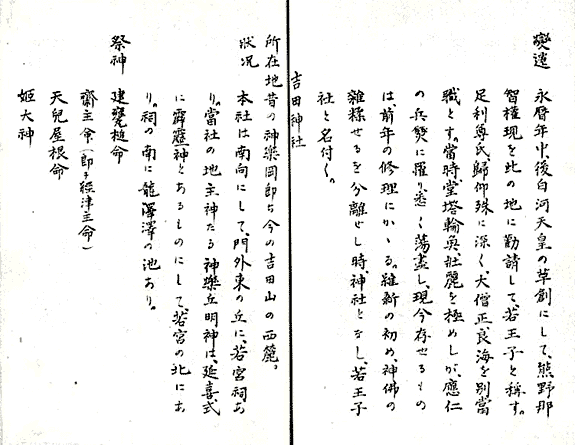 變遷　永曆年中後白河天皇の草創にして、熊野那
智權現を此の地に勸請して、若王子と稱す。
足利尊氏歸仰殊に深く、大僧正良海を別當
職とす。當時堂塔輪奐壯麗を極めしが、應仁
の兵燹に罹り悉く蕩盡し、現今存せるもの
は、前年の修理にかゝる。維新の初め、神佛の
雜糅せるを分離せし時、神社となし、若王子
社と名付く。
吉田神社
所在地 昔の神樂岡即ち今の吉田山の西麓。
狀况　本社は南向にして、門外東の丘に、若宮祠あ
り。當社の地主神たる神樂丘明神は、延喜式
に霹靂神とあるものにして、若宮の北にあ
り。祠の南に龍澤の池あり。
祭神　建甕槌命
齋主命（即チ經津主命）
天兒屋根命
姬大神